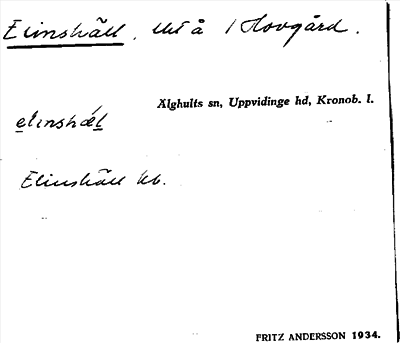 Elinshäll, lht å 1 Hovgård.
Älghults sn, Uppvidinge hd, Kronob. l.
elinshæ̀l
Elinshäll kb.
FRITZ ANDERSSON 1934.